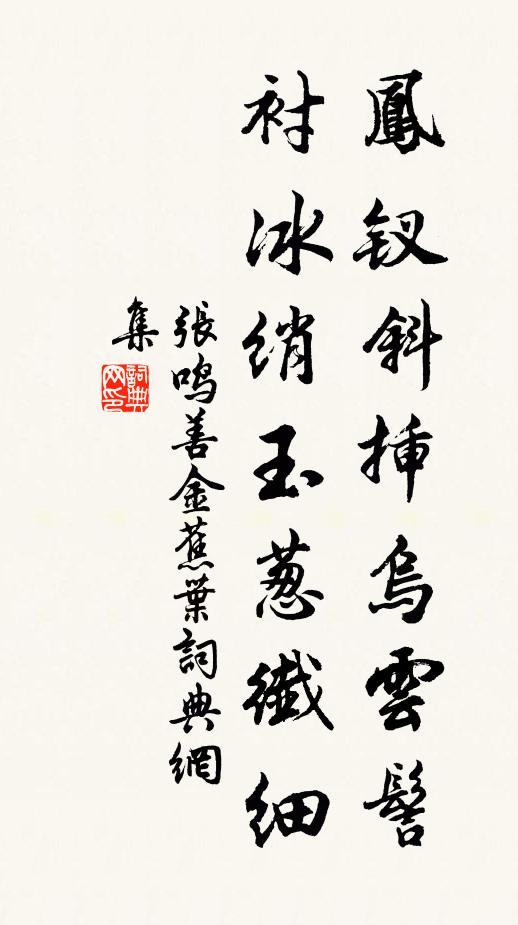 鳳釵斜插烏雲髻
襯冰綃玉葱纖細
張鳴善金蕉葉詞典網
集
詞典
网印